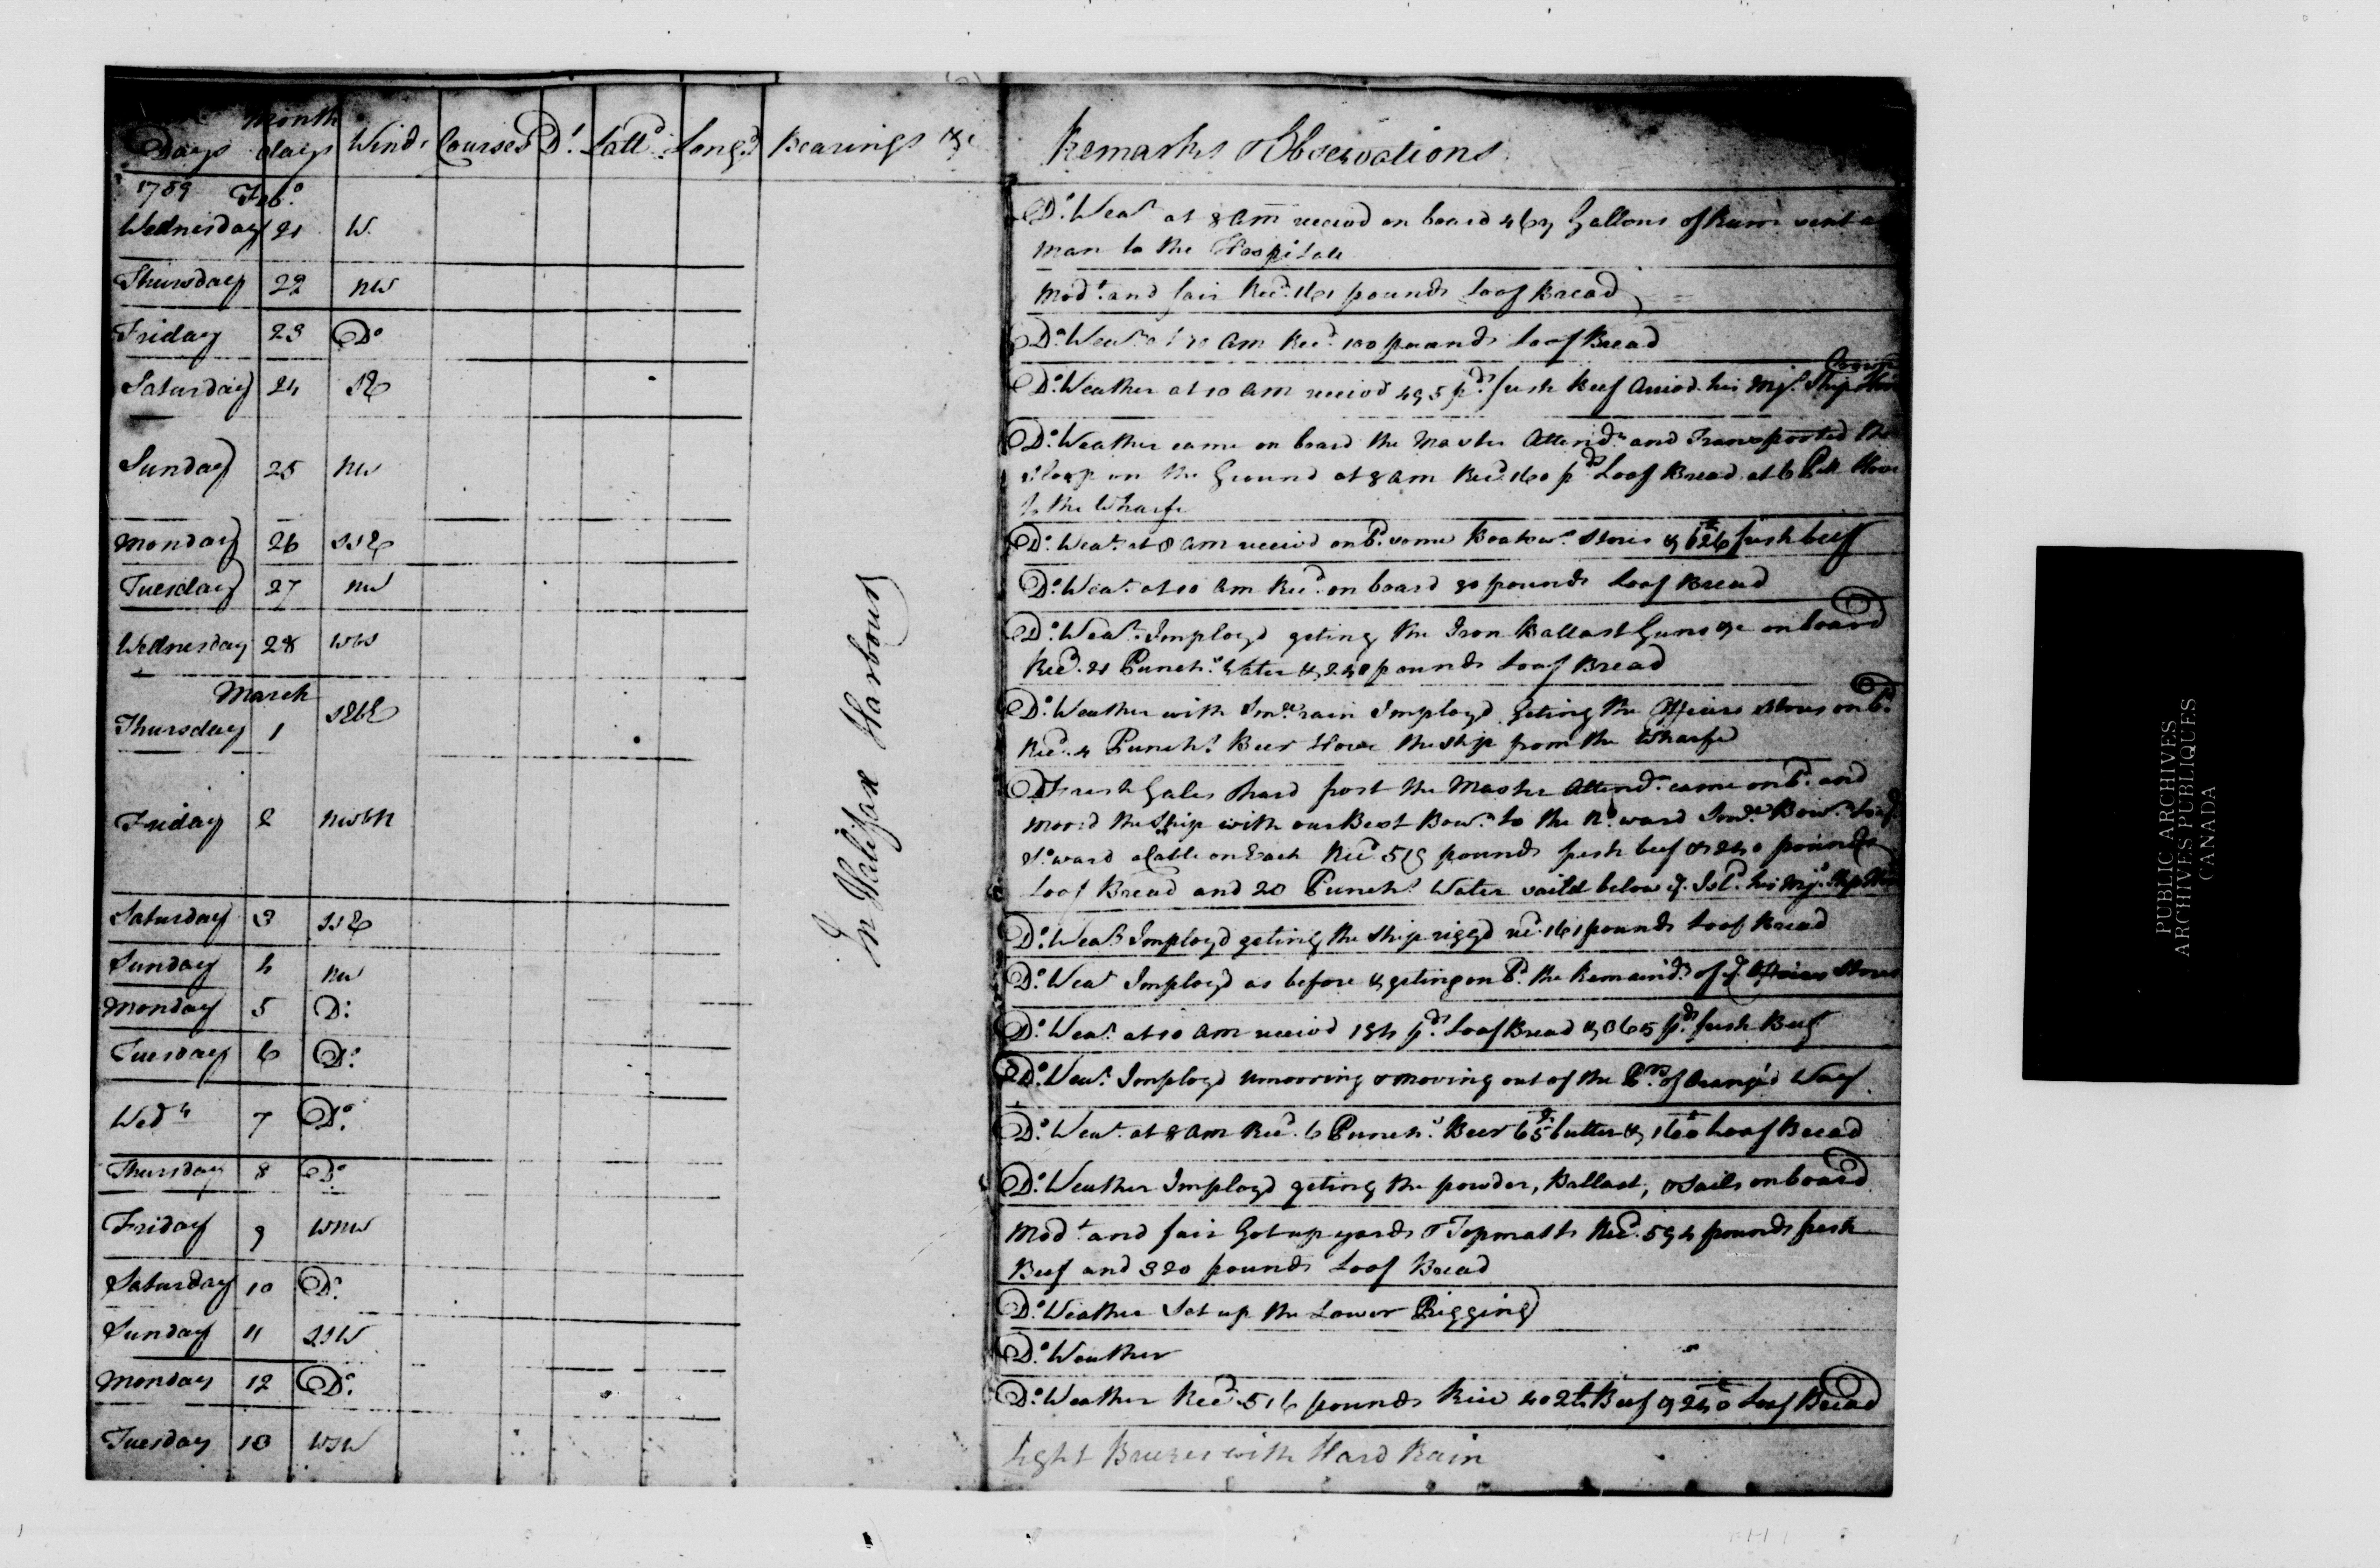 Days Month days Winds Courses Dt. Lattd. Longd. Bearings &c Remarks & Observations
1759 Febo.
Wednesday 21 W. Do. Wear. at 8 am receivd on board 467 Gallons of Rum sent a
man to the Hospitale
Thursday 22 NW Modt. and fair Recd. 161 pounds Loaf Bread
Friday 23 Do Do. Wear. at 10 am Recd. 100 pounds Loaf Bread
Saturday 24 SE Do. Weather at 10 am receivd 495 pds. fresh Beef Arrivd his Mjs. Ship
Sunday 25 NW Do. Weather came on board the Master Attendt. and Transported the
Sloop on the Ground at 8 am Recd. 160 pds Loaf Bread at 6 PM Hove
to the Wharfe
Monday 26 SSE Do. Wear. at 8 am receivd on bd. some Boatsns. Stores & 626 fresh beef
Tuesday 27 NW Do. Wear. at 10 am Recd. on board 80 pounds Loaf Bread
Wednesday 28 WW Do. Wear. Imployd geting the Iron Ballast Guns &c on board
Recd. 21 Punchs. Water & 240 pounds Loaf Bread
March
Thursday 1 SEbE Do. Weather with Smr. rain Imployd Geting the Officers Stores on bd.
Recd. 4 Punchs. Beer Hove the ship from the Wharfe
Friday 2 NWbN Fresh Gales & hard frost the Master Attendt. came on bd. and
moord the Ship with our Best Bowr. to the No.ward Smr. Bowr. to
So.ward a Cable on Each Recd. 519 pounds fresh beef & 240 pounds
Loaf Bread and 20 Punchs. Water saild below ye. Isld. his Mjs. Ship
Saturday 3 SSE Do. Wear. Imployd geting the ship riggd recd. 161 pounds Loaf Bread
Sunday 4 NW Do. Wear Imployd as before & geting on bd. the Remaindr. of ye. Officers Stores
Monday 5 Do. Do. Wear. at 10 am receivd 184 pds. Loaf Bread & 365 pds. fresh Beef
Tuesday 6 Do. Do. Wear. Imployd unmooring & moving out of the Prs. of Orange's Way
Wedn 7 Do. Do. Wear. at 8 am Recd. 6 Punchs. Beer 65 butter & 160 Loaf Bread
Thursday 8 Do. Do. Weather Imployd geting the powder, Ballast, & Sails on board
Friday 9 WNW Modt. and fair Got up yards & Topmasts Recd. 594 pounds fresh
Beef and 320 pounds Loaf Bread
Saturday 10 Do. Do. Weather Set up the Lower Rigging
Sunday 11 SSW Do. Weather
Monday 12 Do. Do. Weather Recd. 516 pounds Rice 402 Beef & 240 Loaf Bread
Tuesday 13 WSW Light Breezes with Hard Rain
In Halifax Harbour
PUBLIC ARCHIVES
ARCHIVES PUBLIQUES
CANADA